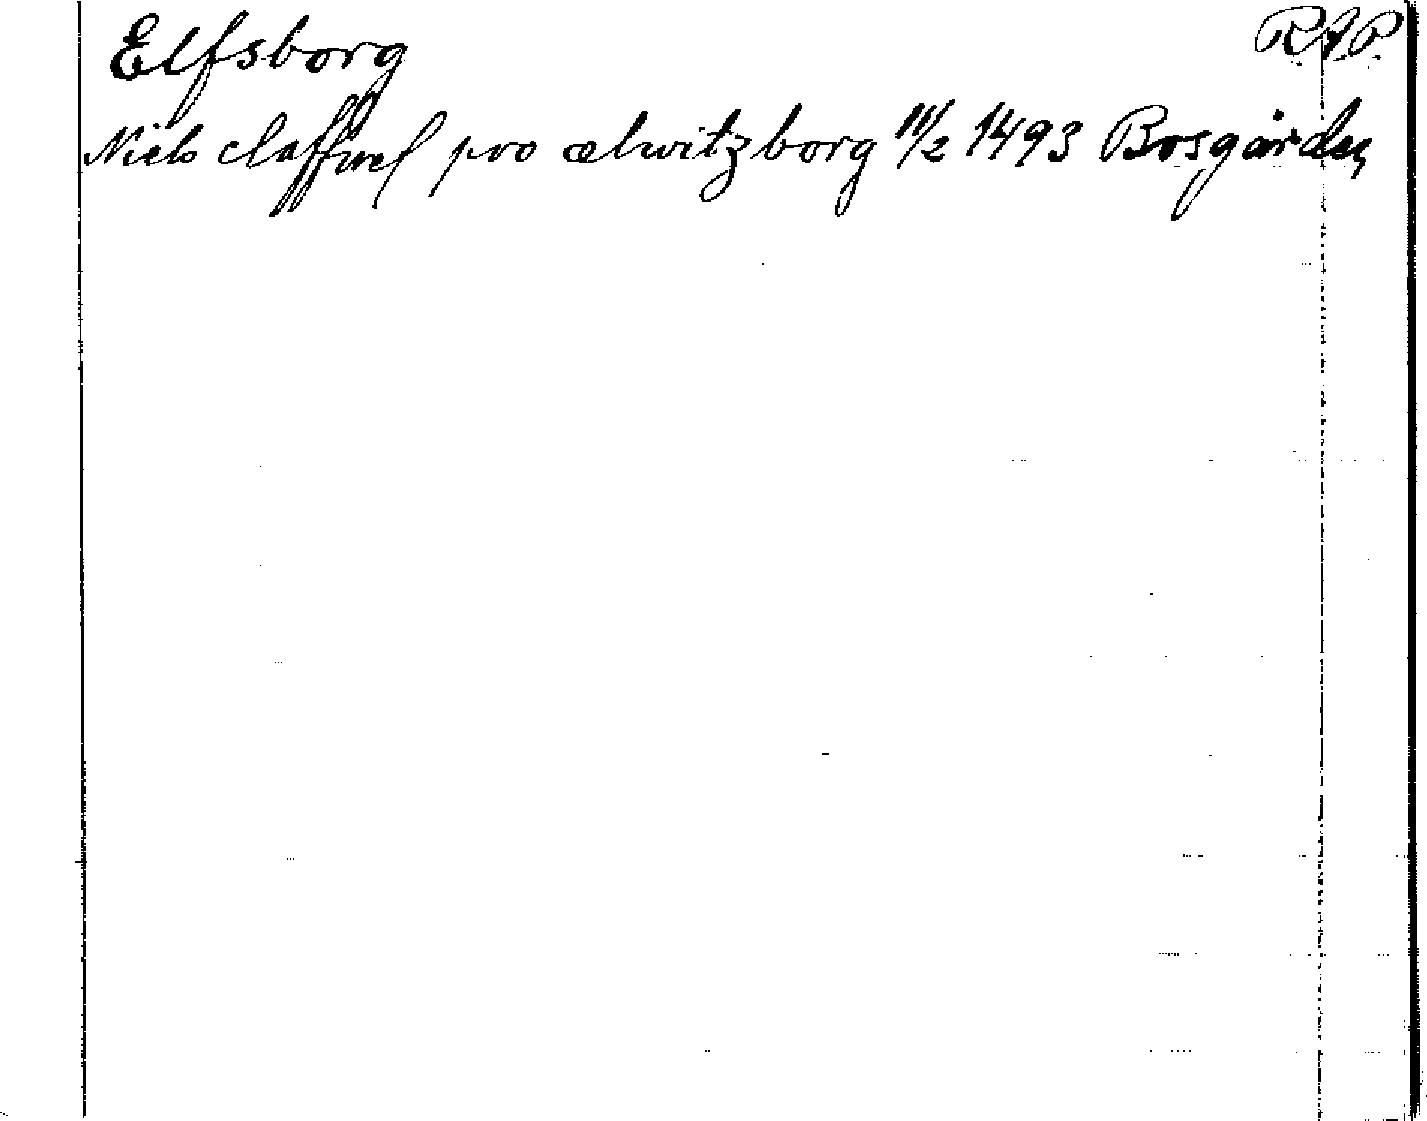 Elfsborg R.A.P.
Niels claffwel pro ælwitzborg 11/2 1493 Bosgården